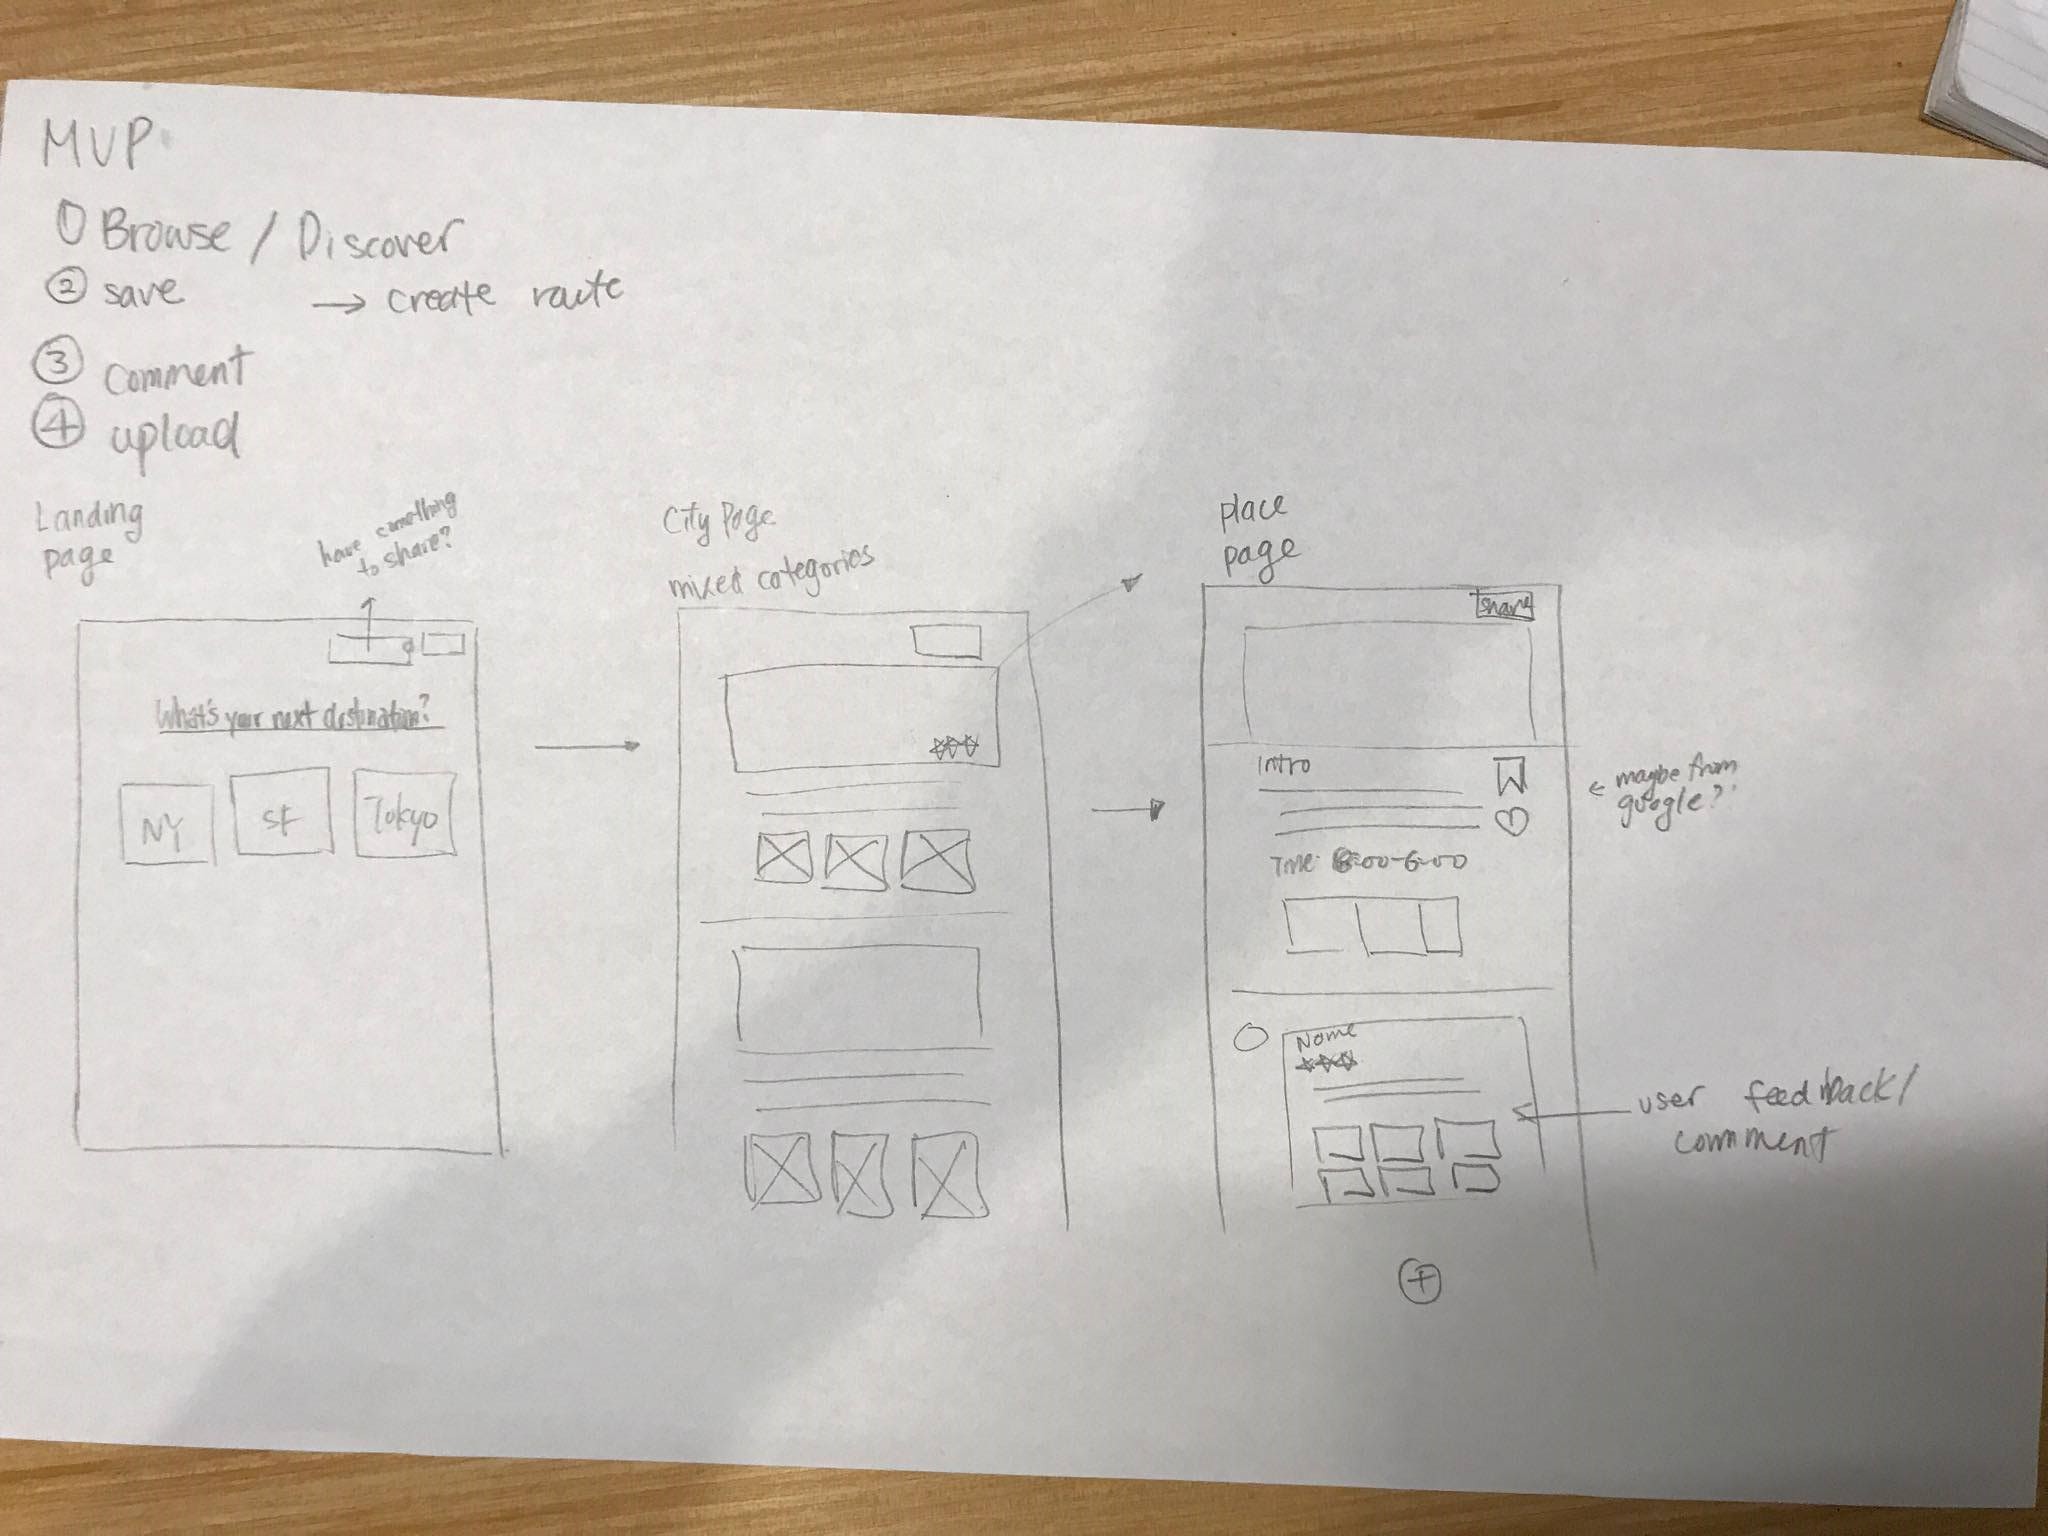 MVP
① Browse / Discover
② save → create route
③ comment
④ upload
Landing
page
have something
to share?
What's your next destination?
NY
SF
Tokyo
City Page
mixed categories
place
page
share
Intro
Time: 8:00-6:00
← maybe from
google?
Name
user feedback/
comment